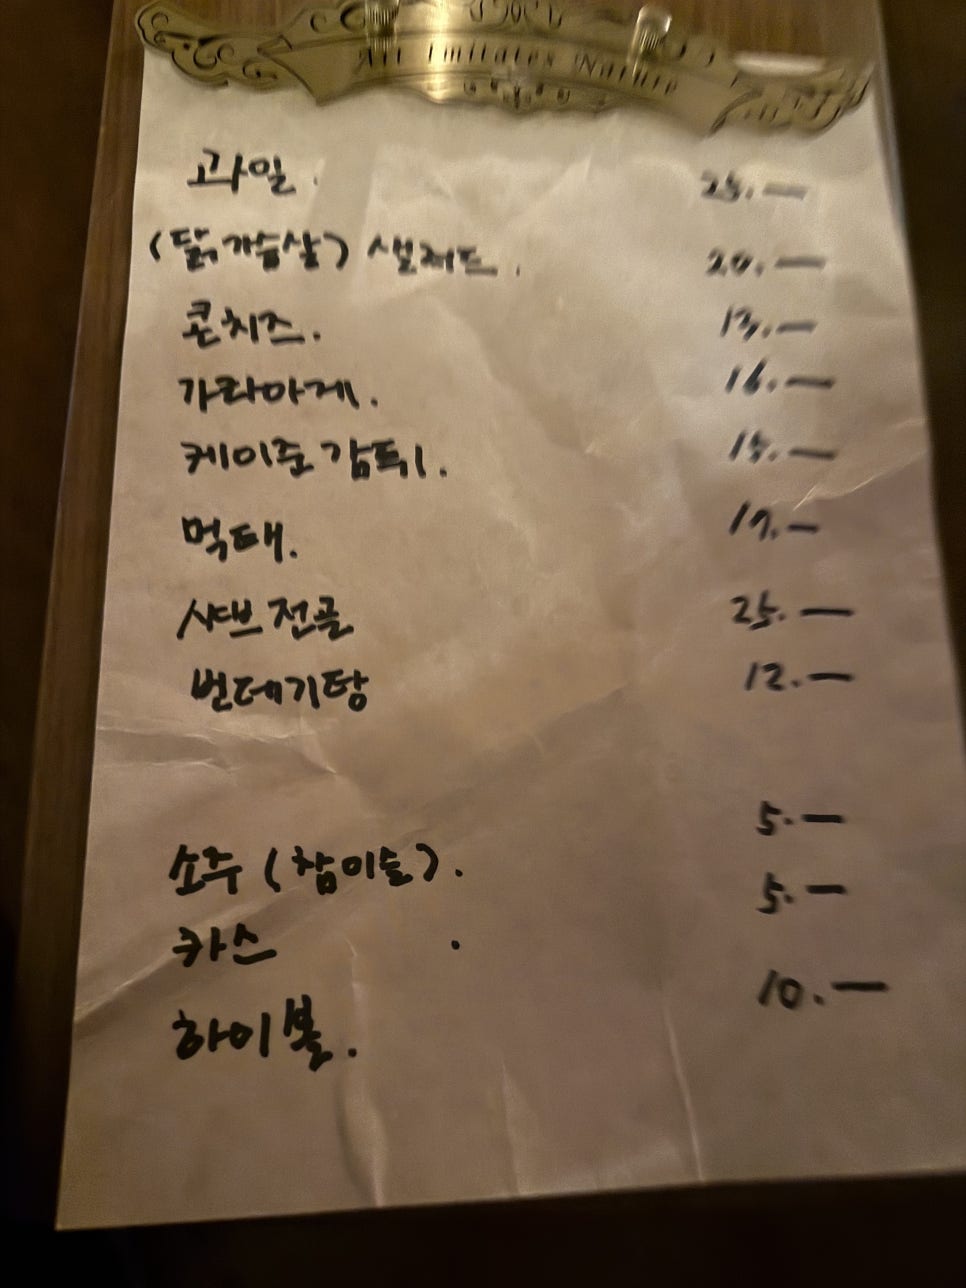 Art Imitates Nature
과일. 25.—
(닭가슴살)샐러드. 20.—
콘치즈. 13.—
가라아게. 16.—
케이준 감튀. 15.—
먹태. 17.—
샤브 전골 25.—
번데기탕 12.—
소주 (참이슬). 5.—
카스 . 5.—
하이볼. 10.—